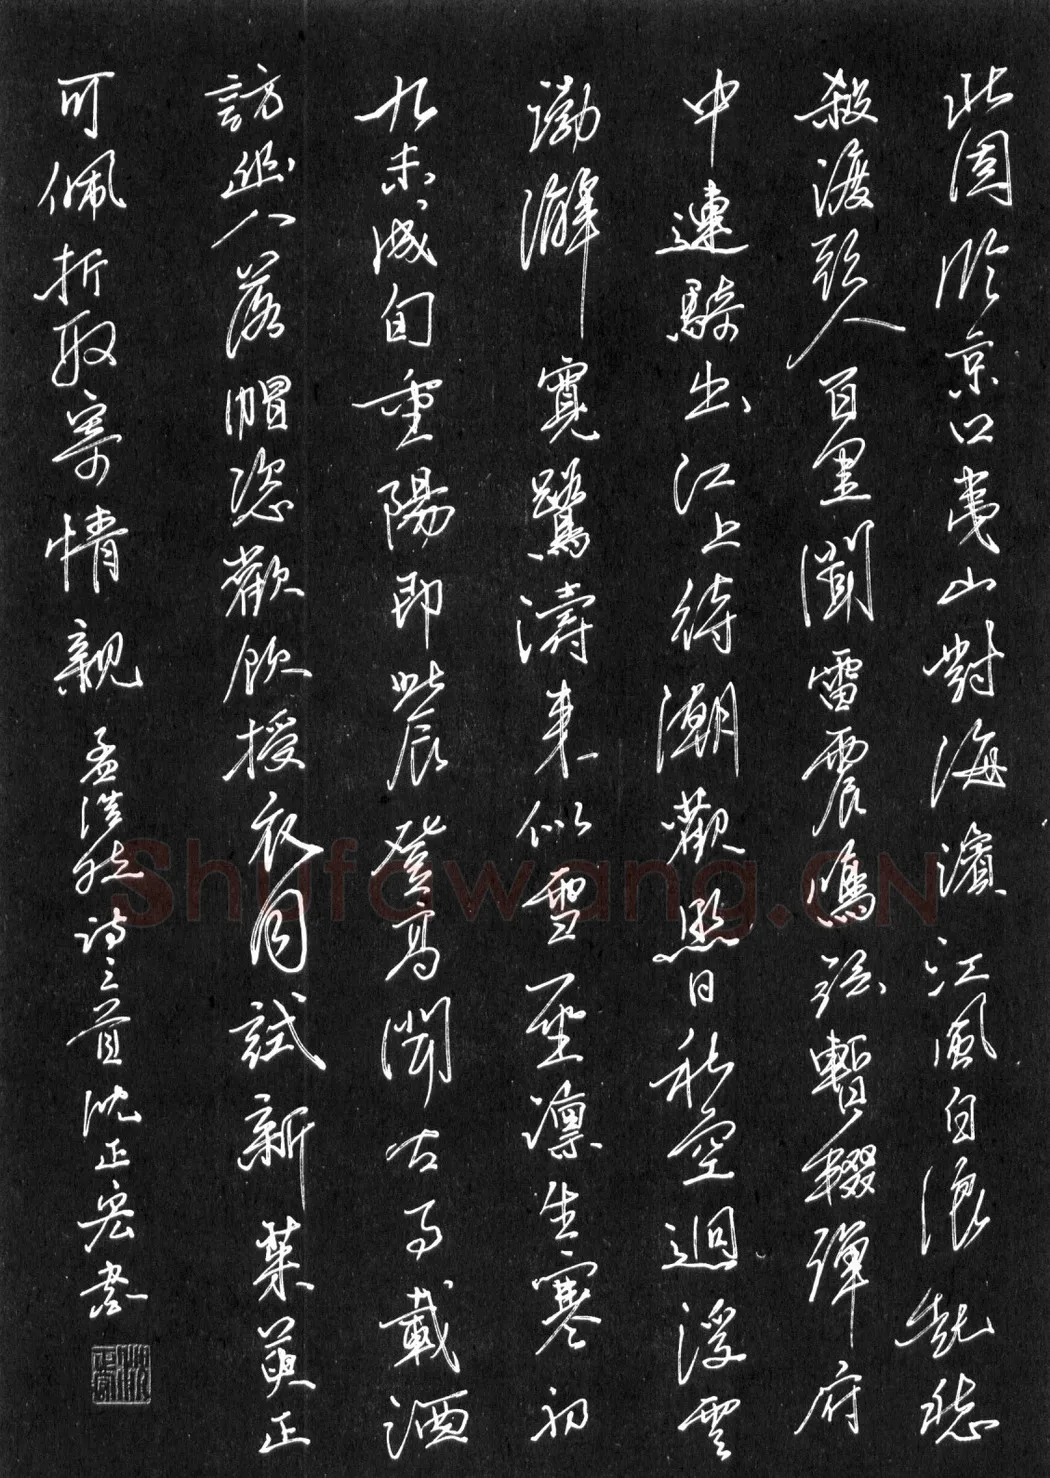 北固臨京口夷山對海濱江風白浪起愁
殺渡頭人百里聞雷震鳴弦暫輟彈府
中連騎出江上待潮觀照日秋空迥浮雲
渤澥寬驚濤來似雪一坐凜生寒初
九未成旬重陽即此辰登高聞古事載酒
訪幽人落帽恣歡飲授衣同試新茱萸正
可佩折取寄情親 孟浩然詩三首 沈正宏書
Shufawang.CN